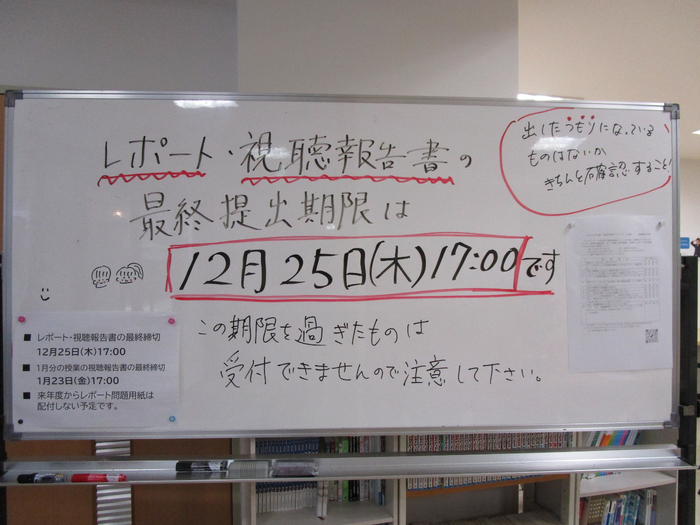 レポート・視聴報告書の
最終提出期限は
12月25日(木)17:00です
この期限を過ぎたものは
受付できませんので注意して下さい。
出したつもりになっている
ものはないか
きちんと確認すること!
■ レポート・視聴報告書の最終締切
12月25日(木)17:00
■ 1月分の授業の視聴報告書の最終締切
1月23日(金)17:00
■ 来年度からレポート問題用紙は
配付しない予定です。